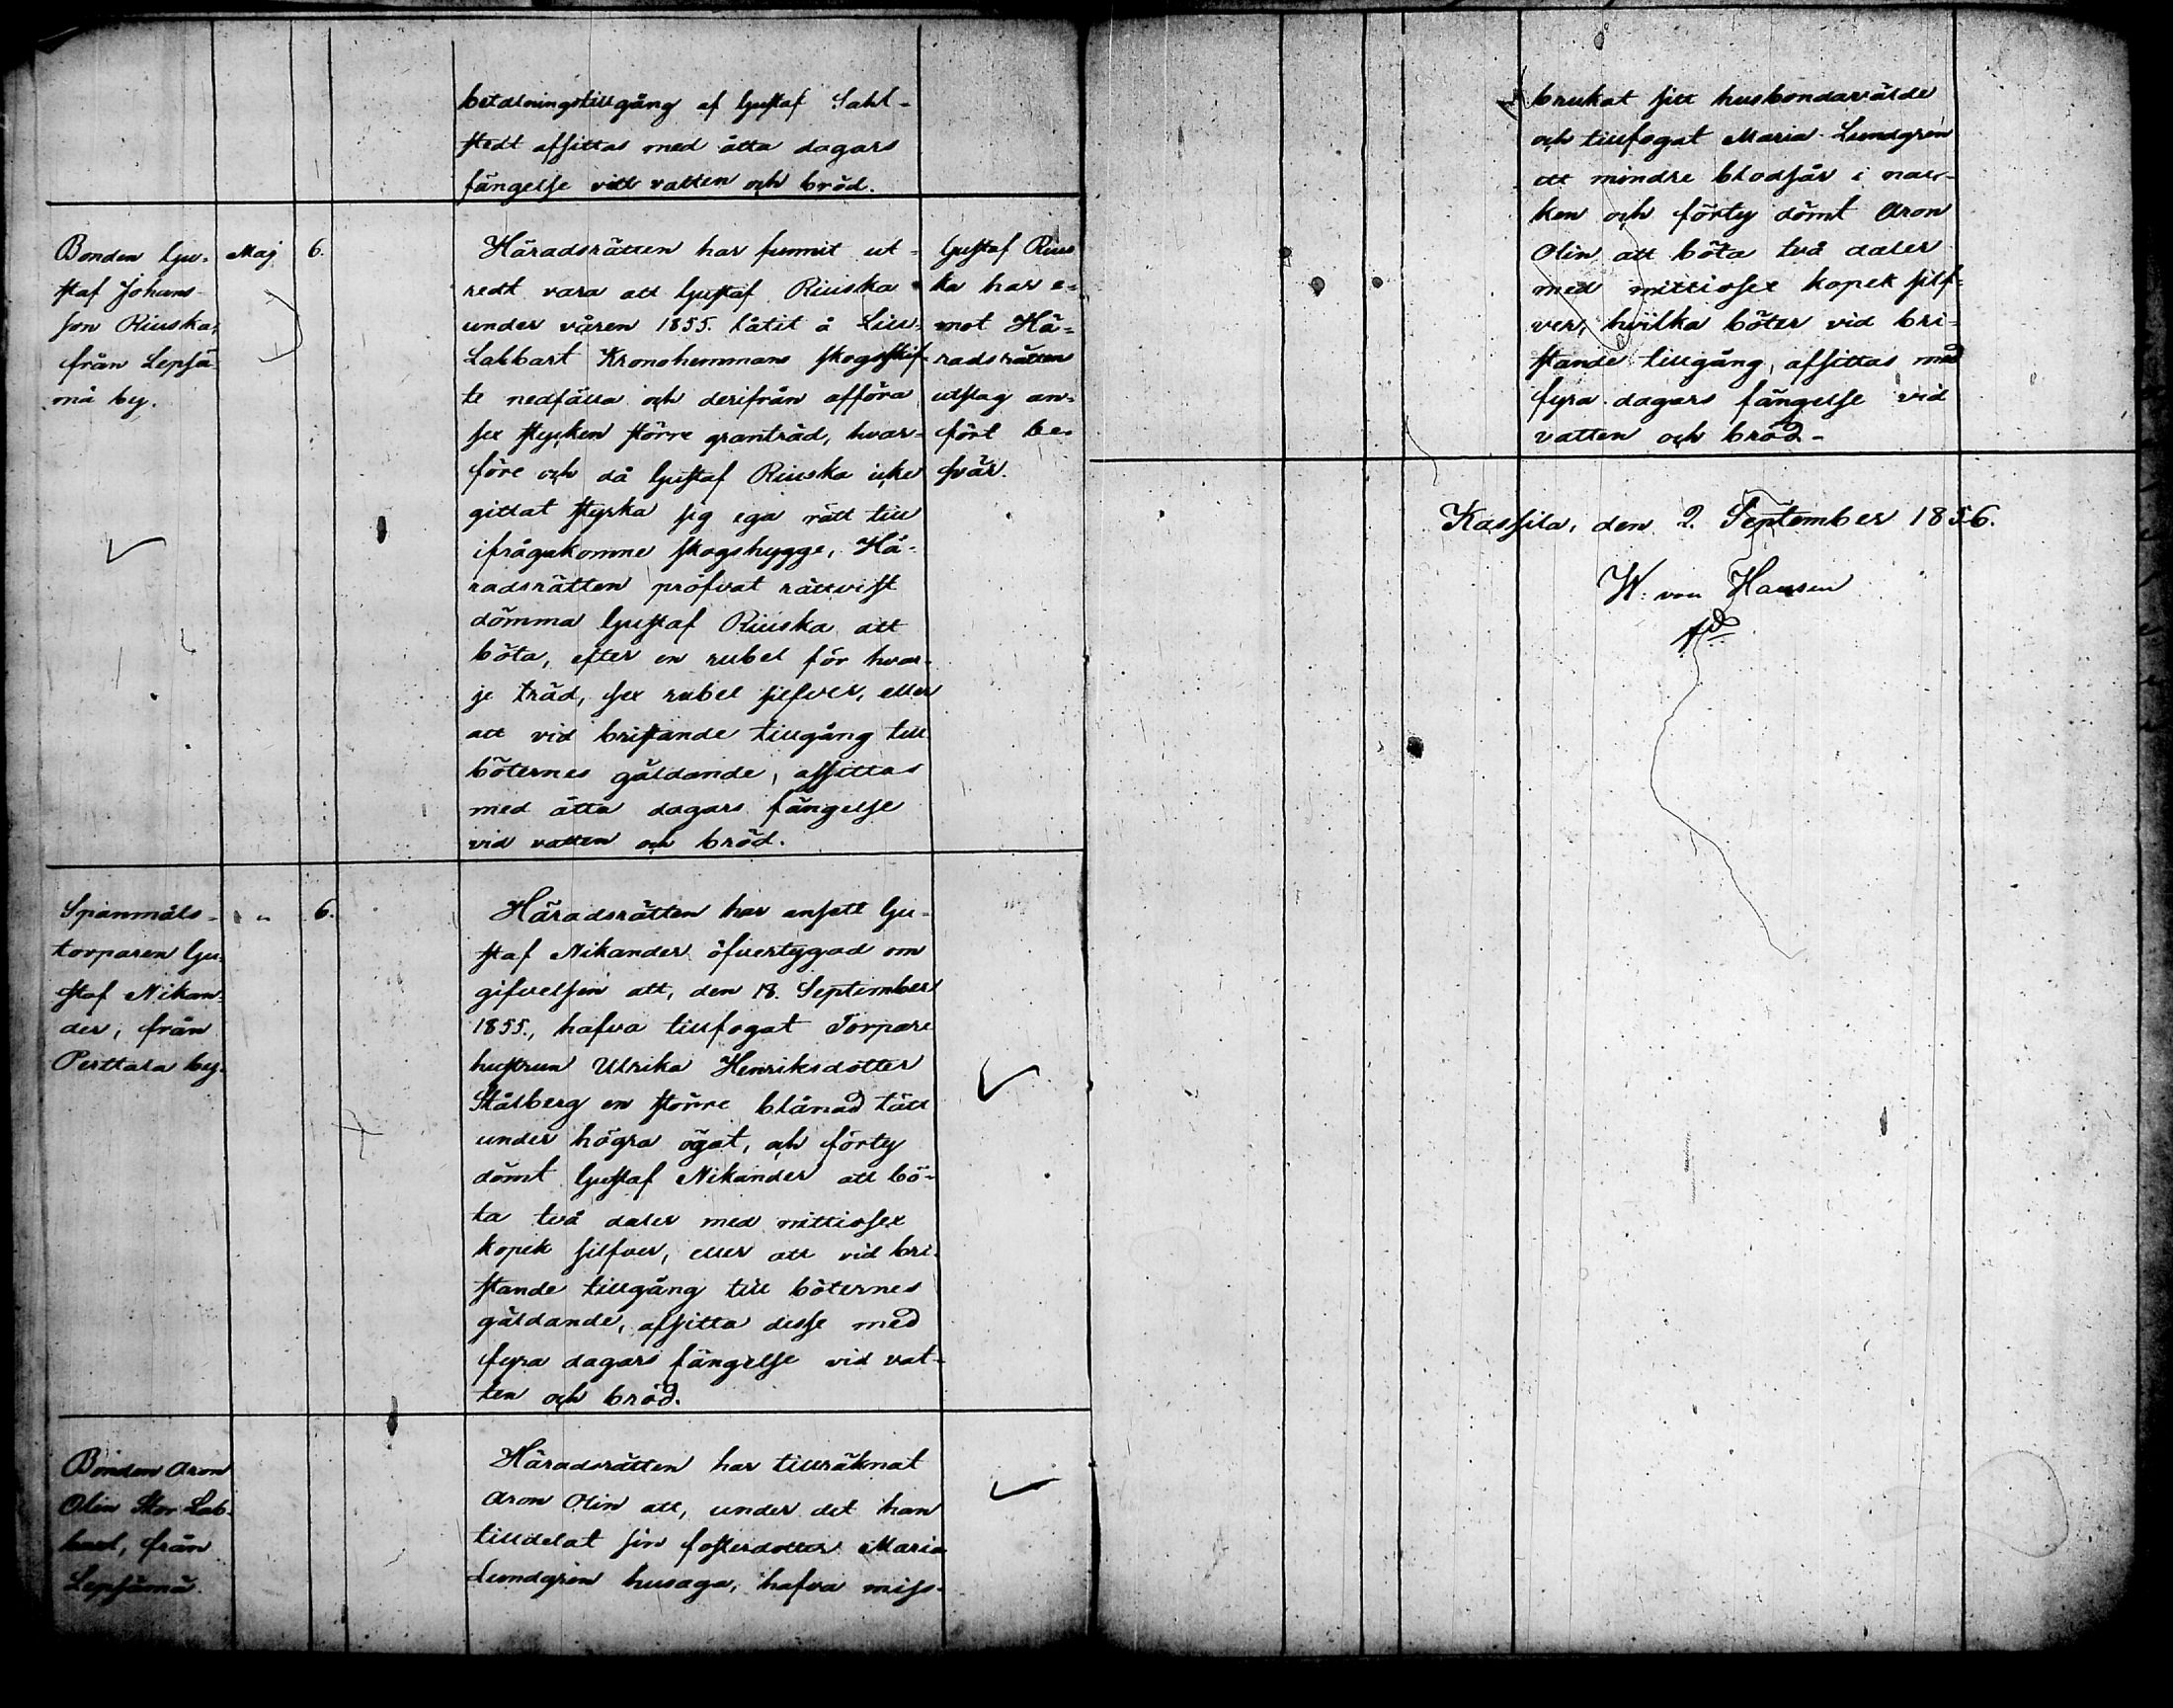 betalningstillgång af Gustaf Sahl-
stedt afsittas med åtta dagars
fängelse vid vatten och bröd.
Bonden Gu-
staf Johans-
son Riuska,
från Lepsä-
mä by.
Maj
6.
Häradsrätten har funnit ut-
redt vara att Gustaf Riuska
under våren 1855. låtit å Lill-
Labbart Kronohemmans skogsskif-
te nedfälla och derifrån afföra
sex stycken större granträd, hvar-
före och då Gustaf Riuska icke
gittat styrka sig ega rätt till
ifrågakomne skogshygge, Hä-
radsrätten pröfvat rättvist
dömma Gustaf Riuska att
böta, efter en rubel för hvar-
je träd, sex rubel silfver, eller
att vid bristande tillgång till
böternes gäldande, afsittas
med åtta dagars fängelse
vid vatten och bröd.
Gustaf Rius
ka har e-
mot Hä-
radsrättens
utslag an-
fört be-
svär.
Spanmåls-
torparen Gu-
staf Nikan-
der, från
Perttala by.
"
6.
Häradsrätten har ansett Gu-
staf Nikander öfvertygad om
gifvelsen att, den 18. September
1855., hafva tillfogat Torpare
hustrun Ulrika Henriksdotter
Stålberg en större blånad tätt
under högra ögat, och förty
dömt Gustaf Nikander att bö-
ta två daler med nittiosex
kopek silfver, eller att vid bri-
stande tillgång till böternes
gäldande, afsitta desse med
fyra dagars fängelse vid vat-
ten och bröd.
Bonden Aron
Olin Stor Lab-
bart, från
Lepsämä.
Häradsrätten har tillräknat
Aron Olin att, under det han
tilldelat sin fosterdotter Maria
Lundgren husaga, hafva miss-
brukat sitt husbondavälde
och tillfogat Maria Lundgren
ett mindre blodsår i nac-
ken och förty dömt Aron
Olin att böta två daler
med nittiosex kopek silf-
ver, hvilka böter vid bri-
stande tillgång, afsittas med
fyra dagars fängelse vid
vatten och bröd.-
Kassila, den 2. September 1856.
W. von Hausen